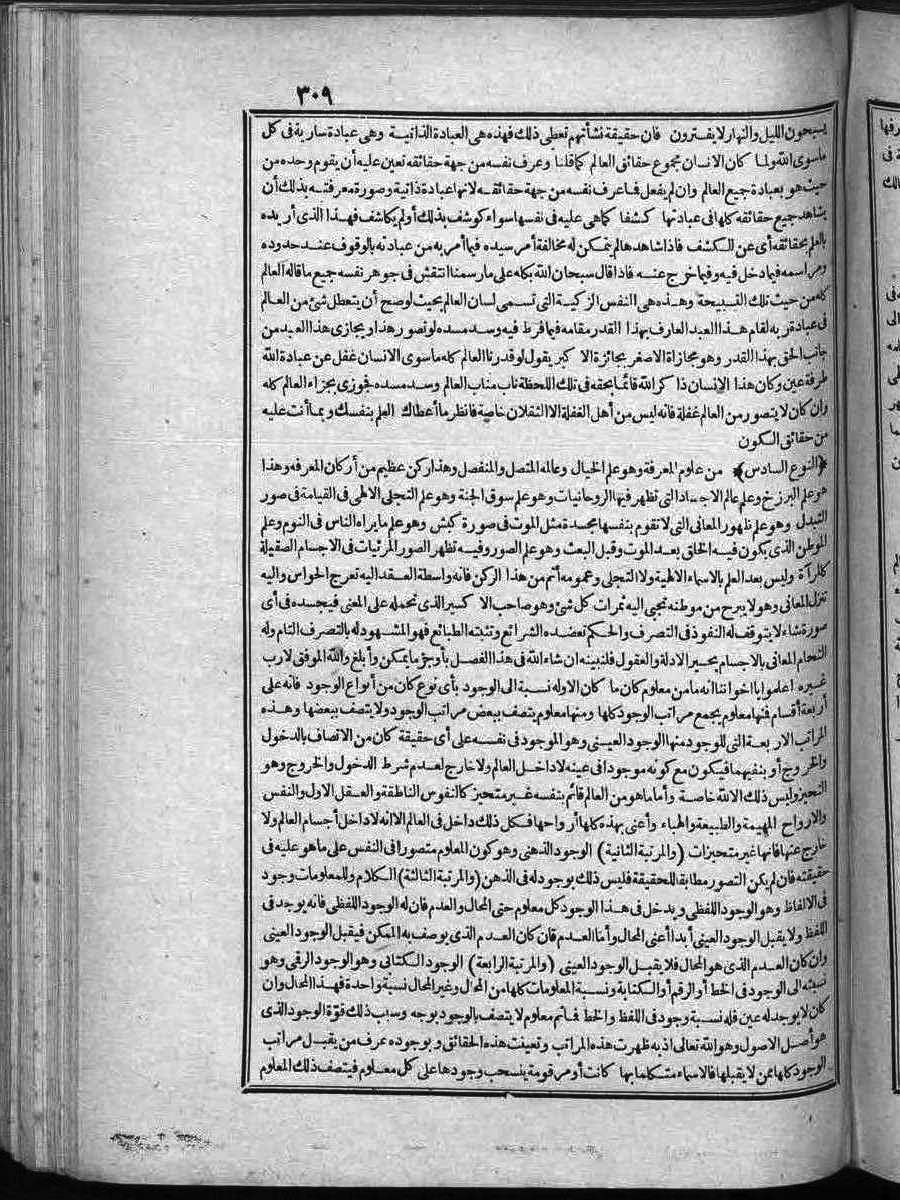 ٣٠٩
يسبحون الليل والنهار لا يفترون فان حقيقة نشأتهم تعطى ذلك فهذه هى العبادة الذاتية وهى عبادة سارية فى كل
ماسوى الله ولما كان الانسان مجموع حقائق العالم كما قلنا وعرف نفسه من جهة حقائقه تعين عليه أن يقوم وحده من
حيث هو بعبادة جميع العالم وان لم يفعل فما عرف نفسه من جهة حقائقه لانها عبادة ذاتية وصورة معرفته بذلك أن
يشاهد جميع حقائقه كلها فى عبادتها كشفا كما هى عليه فى نفسها سواء كوشف بذلك أو لم يكاشف فهذا الذى أريده
بالعلم بحقائقه أى عن الكشف فاذا شاهدها لم يتمكن له مخالفة أمر سيده فيما أمر به من عبادته بالوقوف عند حدوده
ومراسمه فيما دخل فيه وفيما خرج عنه فاذا قال سبحان الله بكله على ما رسمنا انتقش فى جوهر نفسه جميع ما قاله العالم
كله من حيث تلك التسبيحة وهذه هى النفس الزكية التى تسمى لسان العالم بحيث لو صح أن يتعطل شئ من العالم
فى عبادة ربه لقام هذا العبد العارف بهذا القدر مقامه فيما فرط فيه وسد مسده لو تصور هذا ويجازى هذا العبد من
جانب الحق بهذا القدر وهو مجازاة الاصغر بجائزة الاكبر يقول لو قدرنا العالم كله ماسوى الانسان غفل عن عبادة الله
طرفة عين وكان هذا الانسان ذاكر الله قائما بحقه فى تلك اللحظة ناب مناب العالم وسد مسده فجوزى بجزاء العالم كله
وان كان لا يتصور من العالم غفلة فانه ليس من أهل الغفلة الا الثقلان خاصة فانظر ما أعطاك العلم بنفسك وبما أنت عليه
من حقائق الكون
﴿النوع السادس﴾ من علوم المعرفة وهو علم الخيال وعالمه المتصل والمنفصل وهذا ركن عظيم من أركان المعرفه وهذا
هو علم البرزخ وعلم عالم الاجساد التى تظهر فيها الروحانيات وهو علم سوق الجنة وهو علم التجلى الالهى فى القيامة فى صور
التبدل وهو علم ظهور المعانى التى لا تقوم بنفسها مجسدة مثل الموت فى صورة كبش وهو علم ما يراه الناس فى النوم وعلم
الموطن الذى يكون فيه الخلق بعد الموت وقبل البعث وهو علم الصور وفيه تظهر الصور المرئيات فى الاجسام الصقيلة
كالمرآة وليس بعد العلم بالاسماء الالهية ولا التجلى وعمومه أتم من هذا الركن فانه واسطة العقد اليه تعرج الحواس واليه
تنزل المعانى وهو لا يبرح من موطنه تجبى اليه ثمرات كل شئ وهو صاحب الاكسير الذى تحمله على المعنى فيجسده فى أى
صورة شاء لا يتوقف له النفوذ فى التصرف والحكم تعضده الشرائع وتثبته الطبائع فهو المشهود له بالتصرف التام وله
التحام المعانى بالاجسام يحير الادلة والعقول فلنبينه ان شاء الله فى هذا الفصل بأوجز ما يمكن وأبلغ والله الموفق لا رب
غيره اعلموا يا اخواننا انه ما من معلوم كان ما كان الا وله نسبة الى الوجود بأى نوع كان من أنواع الوجود فانه على
أربعة أقسام فمنها معلوم يجمع مراتب الوجود كلها ومنها معلوم يتصف ببعض مراتب الوجود ولا يتصف ببعضها وهذه
المراتب الاربعة التى للوجود منها الوجود العينى وهو الموجود فى نفسه على أى حقيقة كان من الاتصاف بالدخول
والخروج أو بنفيهما فيكون مع كونه موجودا فى عينه لا داخل العالم ولا خارج لعدم شرط الدخول والخروج وهو
التحيز وليس ذلك الا لله خاصة وأما ما هو من العالم قائم بنفسه غير متحيز كالنفوس الناطقة والعقل الاول والنفس
والارواح المهيمة والطبيعة والهباء وأعنى بهذه كلها أرواحها فكل ذلك داخل فى العالم الا انه لا داخل أجسام العالم ولا
خارج عنها فانها غير متحيزات (والمرتبة الثانية) الوجود الذهنى وهو كون المعلوم متصورا فى النفس على ما هو عليه فى
حقيقته فان لم يكن التصور مطابقا للحقيقة فليس ذلك بوجود له فى الذهن (والمرتبة الثالثة) الكلام وللمعلومات وجود
فى الالفاظ وهو الوجود اللفظى ويدخل فى هذا الوجود كل معلوم حتى المحال والعدم فان له الوجود اللفظى فانه يوجد فى
اللفظ ولا يقبل الوجود العينى أبدا أعنى المحال وأما العدم فان كان العدم الذى يوصف به الممكن فيقبل الوجود العينى
وان كان العدم الذى هو المحال فلا يقبل الوجود العينى (والمرتبة الرابعة) الوجود الكتابى وهو الوجود الرقمى وهو
نسبته الى الوجود فى الخط أو الرقم أو الكتابة ونسبة المعلومات كلها من المحال وغير المحال نسبة واحدة فهذا المحال وان
كان لا يوجد له عين فله نسبة وجود فى اللفظ والخط فما ثم معلوم لا يتصف بالوجود بوجه وسبب ذلك قوة الوجود الذى
هو أصل الاصول وهو الله تعالى اذ به ظهرت هذه المراتب وتعينت هذه الحقائق وبوجوده عرف من يقبل مراتب
الوجود كلها ممن لا يقبلها فالاسماء متكلما بها كانت أو مرقومة ينسحب وجودها على كل معلوم فيتصف ذلك المعلوم